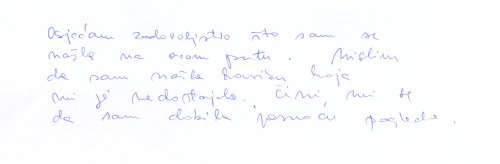 Osjećam zadovoljstvo što sam se
našla na ovom putu. Mislim
da sam našla kariku koja
mi je nedostajala. Čini mi se
da sam dobila jasnoću pogleda.